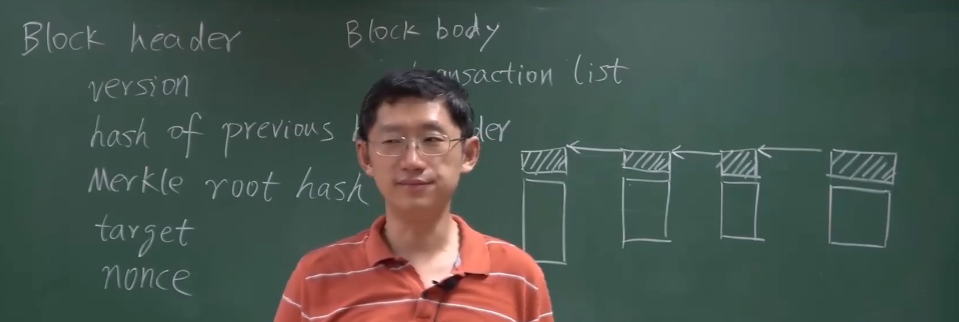 Block header
version
hash of previous
Merkle root hash
target
nonce
Block body
list